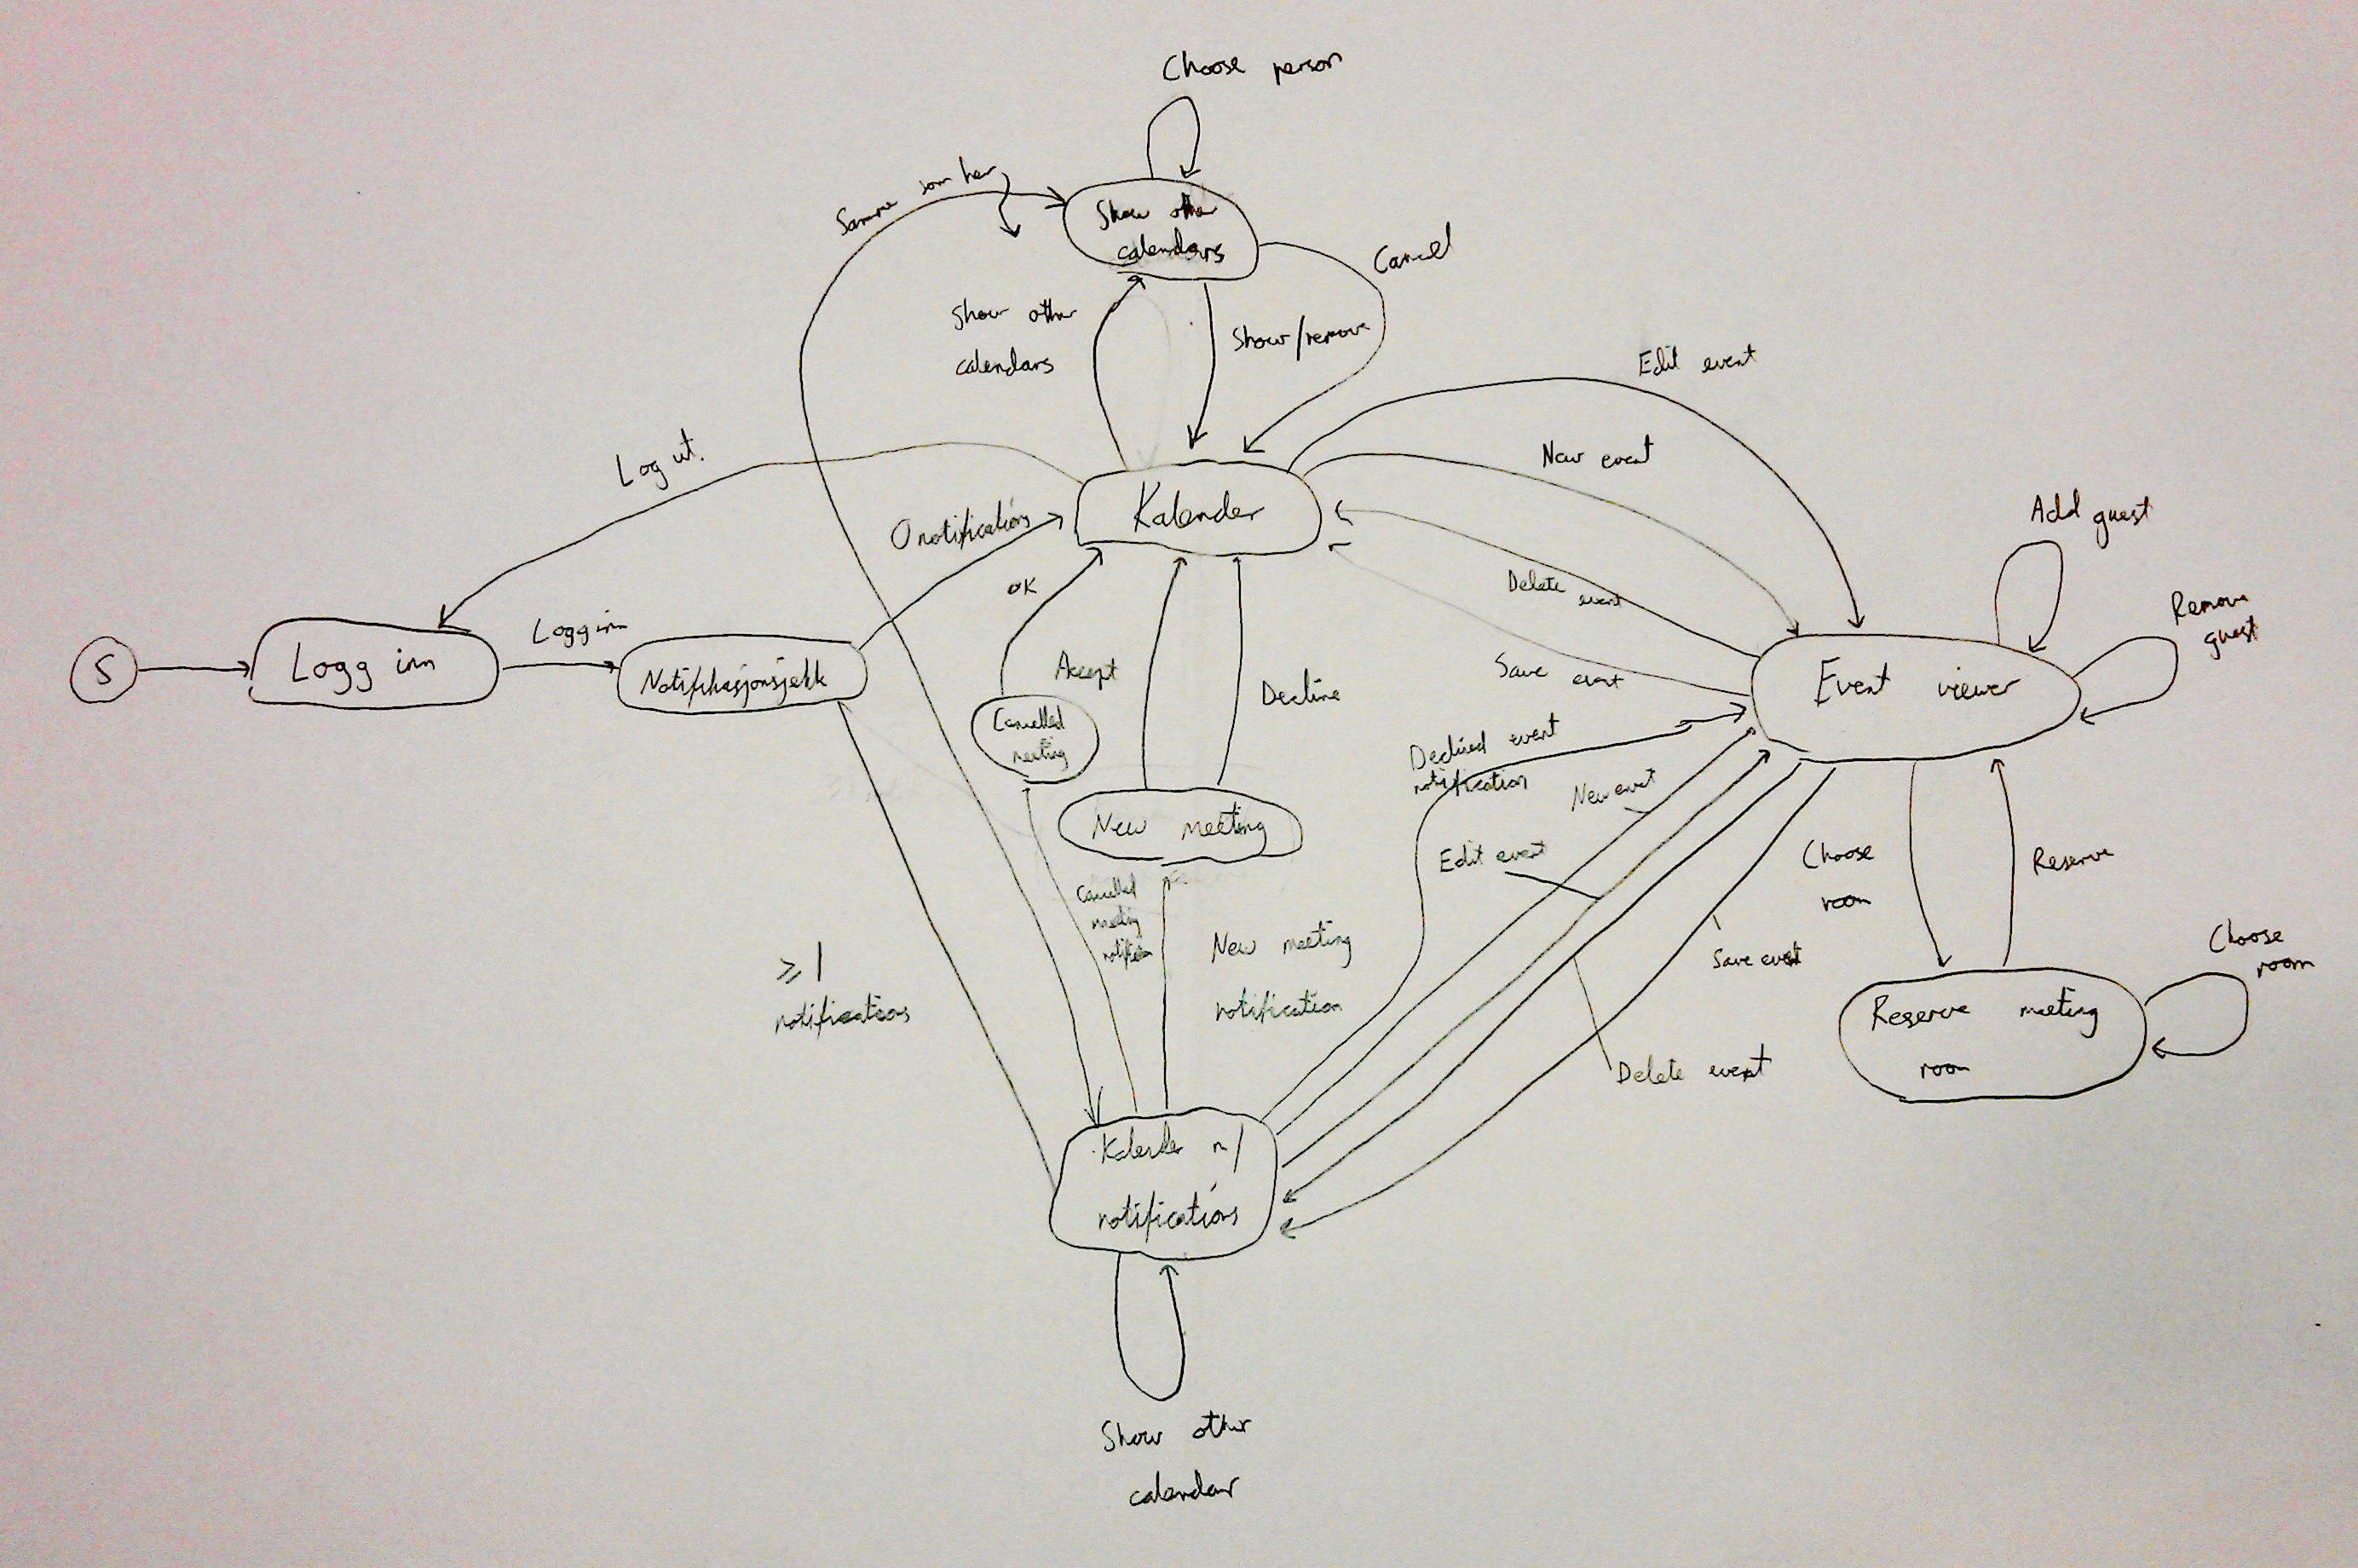 Choose person
Samme som her
Show other
calendars
Cancel
Show other
calendars
Show/remove
Edit event
Log ut.
New event
0 notifications
Kalender
Add guest
OK
Delete
event
Remove
guest
S
Logg inn
Logg inn
Notifikasjonsjekk
Accept
Decline
Save event
Event viewer
Cancelled
meeting
Declined event
notification
New event
New meeting
Edit event
Choose
room
Reserve
Cancelled
meeting
notification
New meeting
notification
Save event
Choose
room
≥1
notifications
Reserve meeting
room
Delete event
Kalender m/
notifications
Show other
calendar